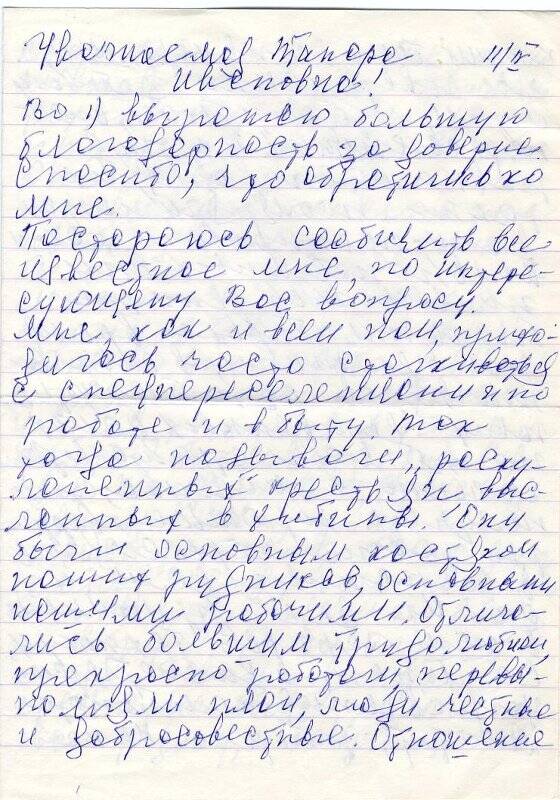 Уважаемая Тамара 11/IV
Ивановна!
Во 1) выражаю большую
благодарность за доверие.
Спасибо, что обратились ко
мне.
Постараюсь сообщить все
известное мне, по интере-
сующему Вас вопросу.
Мне, как и всем нам, прихо-
дилось часто сталкиваться
с спецпереселенцами и по
работе и в быту. Так
тогда называли „раску-
лаченных" крестьян выс-
ланных в Хибины. Они
были основным костяком
наших рудников, основными
нашими рабочими. Отлича-
лись большим трудолюбием,
прекрасно работали, перевы-
полняли план, люди честные
и добросовестные. Отношение